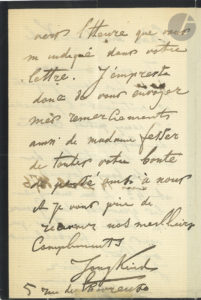 vers l'heure que vous
m indiqué dans votre
lettre. J'empresse
donc de vous envoyer
mes remerciements
ainsi de madame fesser
de toutes votre bonté
à nous
et je vous prie de
recevoir nos meilleurs
Compliments
Jongkind
5 rue de